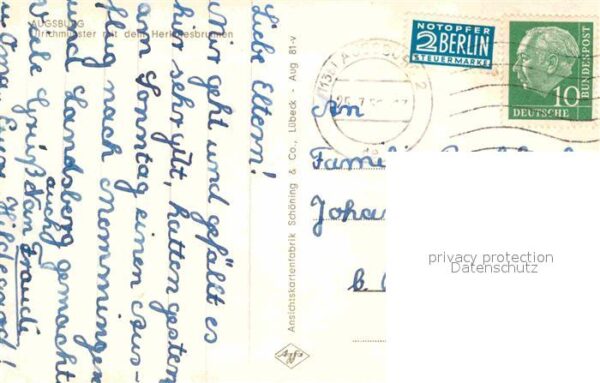 AUGSBURG
Ulrichmünster mit dem Herkulesbrunnen
Liebe Eltern!
Mir geht und gefällt es
hier sehr gut, hatten gestern
am Sonntag einen Aus-
flug nach Memmingen
und Landsberg gemacht
Viele Grüße
auch
an Oma Eure Hildegard!
Ansichtskartenfabrik Schöning & Co., Lübeck - Aug 81-v
NOTOPFER
2 BERLIN
STEUERMARKE
10
DEUTSCHE
BUNDESPOST
An
Johan
b.
privacy protection
Datenschutz